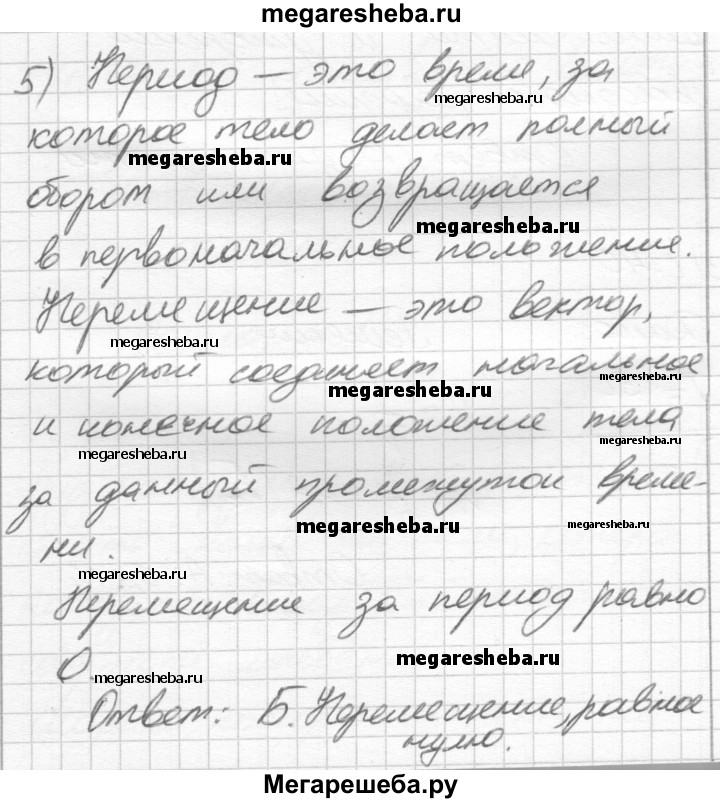 megaresheba.ru
5) Период – это время, за
megaresheba.ru
которое тело делает полный
megaresheba.ru
оборот или возвращается
megaresheba.ru
в первоначальное положение.
Перемещение – это вектор,
megaresheba.ru
который соединяет начальное
megaresheba.ru
megaresheba.ru
и конечное положение тела
megaresheba.ru
megaresheba.ru
за данный промежуток време-
megaresheba.ru
megaresheba.ru
ни.
megaresheba.ru
Перемещение за период равно
0
megaresheba.ru
megaresheba.ru
Ответ: Б. Перемещение, равное
нулю.
Мегарешеба.ру